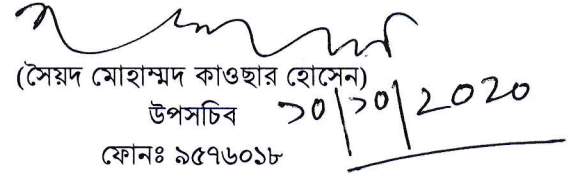 (সৈয়দ মোহাম্মদ কাওছার হোসেন)
উপসচিব
১০/১০/2020
ফোনঃ ৯৫৭৬০১৮